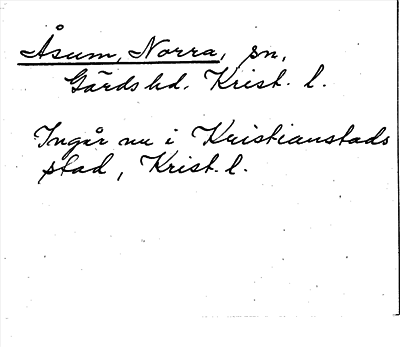 Åsum, Norra, sn,
Gärds hd. Krist. l.
Ingår nu i Kristianstads
stad, Krist. l.